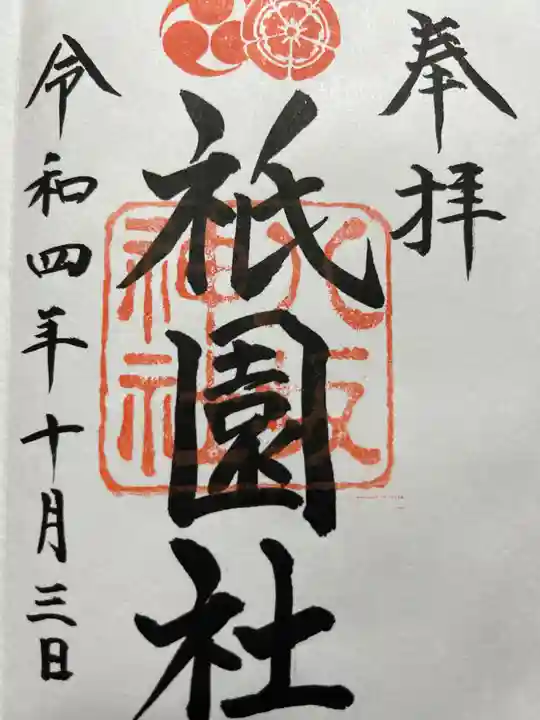 奉拝
祇園社
八坂
神社
令和四年十月三日